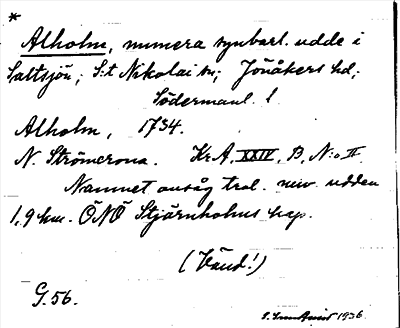 *
Alholm, numera synbarl. udde i
Saltsjön, S:t Nikolai sn; Jönåkers hd;
Södermanl. l.
Alholm, 1734.
N. Strömcrona. Kr A, XXIV, B, N:o II.
Namnet ansåg trol. nuv. udden
1,9 km. ÖNÖ Stjärnholms kap.
(Vänd!)
G. 56.
1936.